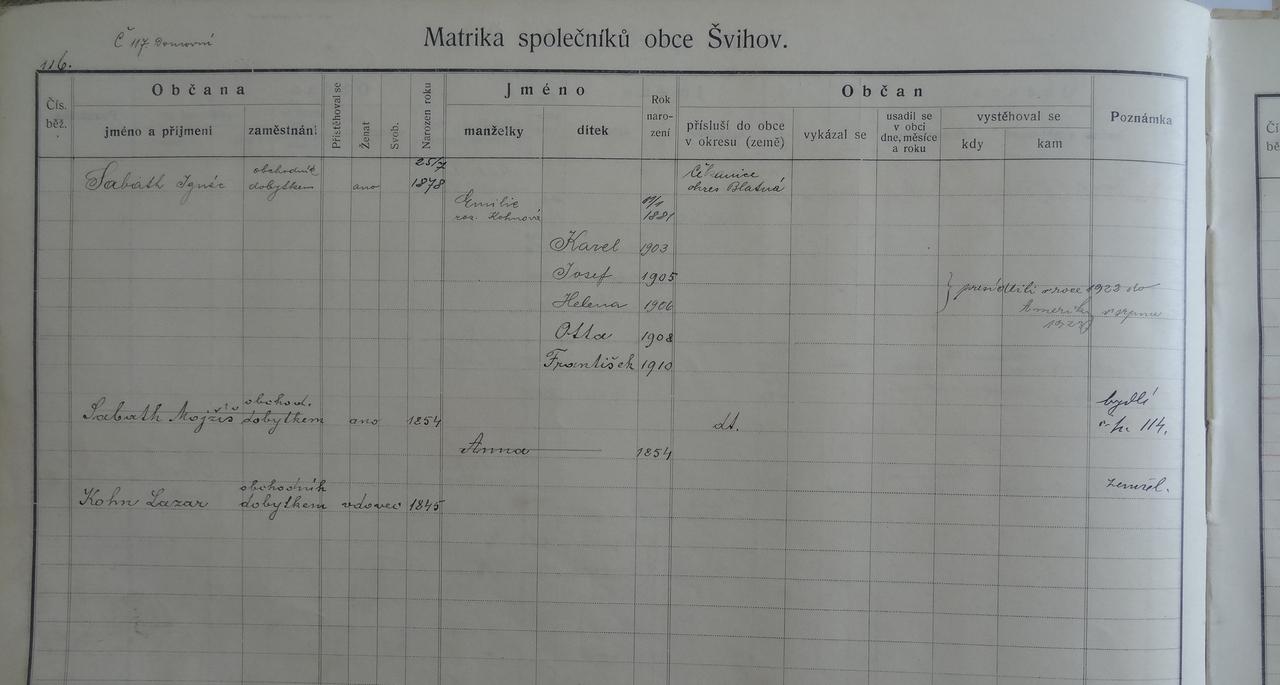 Č 117 Domovní
Matrika společníků obce Švihov.
116.
Čís. běž.
Občana
jméno a příjmení
zaměstnání
Přistěhoval se
Ženat
Svob.
Narozen roku
Jméno
manželky
dítek
Rok naro- zení
Občan
přísluší do obce v okresu (země)
vykázal se
usadil se v obci dne, měsíce a roku
vystěhoval se
kdy
kam
Poznámka
Sabath Ignác obchodník dobytkem ano 25/7 1878 okres Blatná
Emilie roz. Kohnová 1881
Karel 1903
Josef 1905
Helena 1906
v roce 1923 do
v srpnu
Otta 1908
František 1910
Sabath Mojžiš obchod. dobytkem ano 1854 dt. bydlí v čp. 114.
Anna 1854
Kohn Lazar obchodník dobytkem vdovec 1845 zemřel.